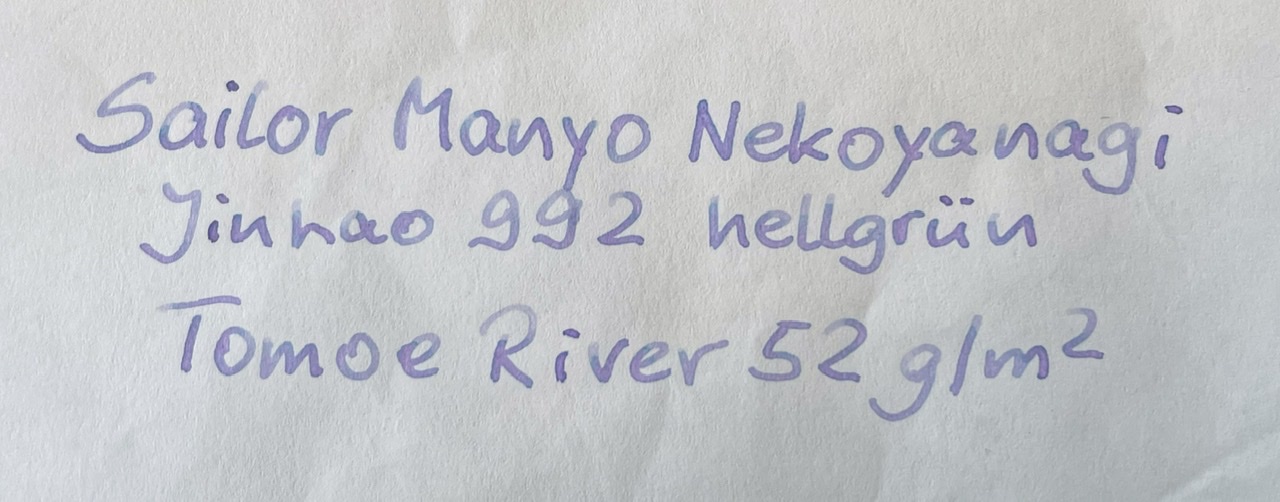 Sailor Manyo Nekoyanagi
Jinhao 992 hellgrün
Tomoe River 52 g/m²